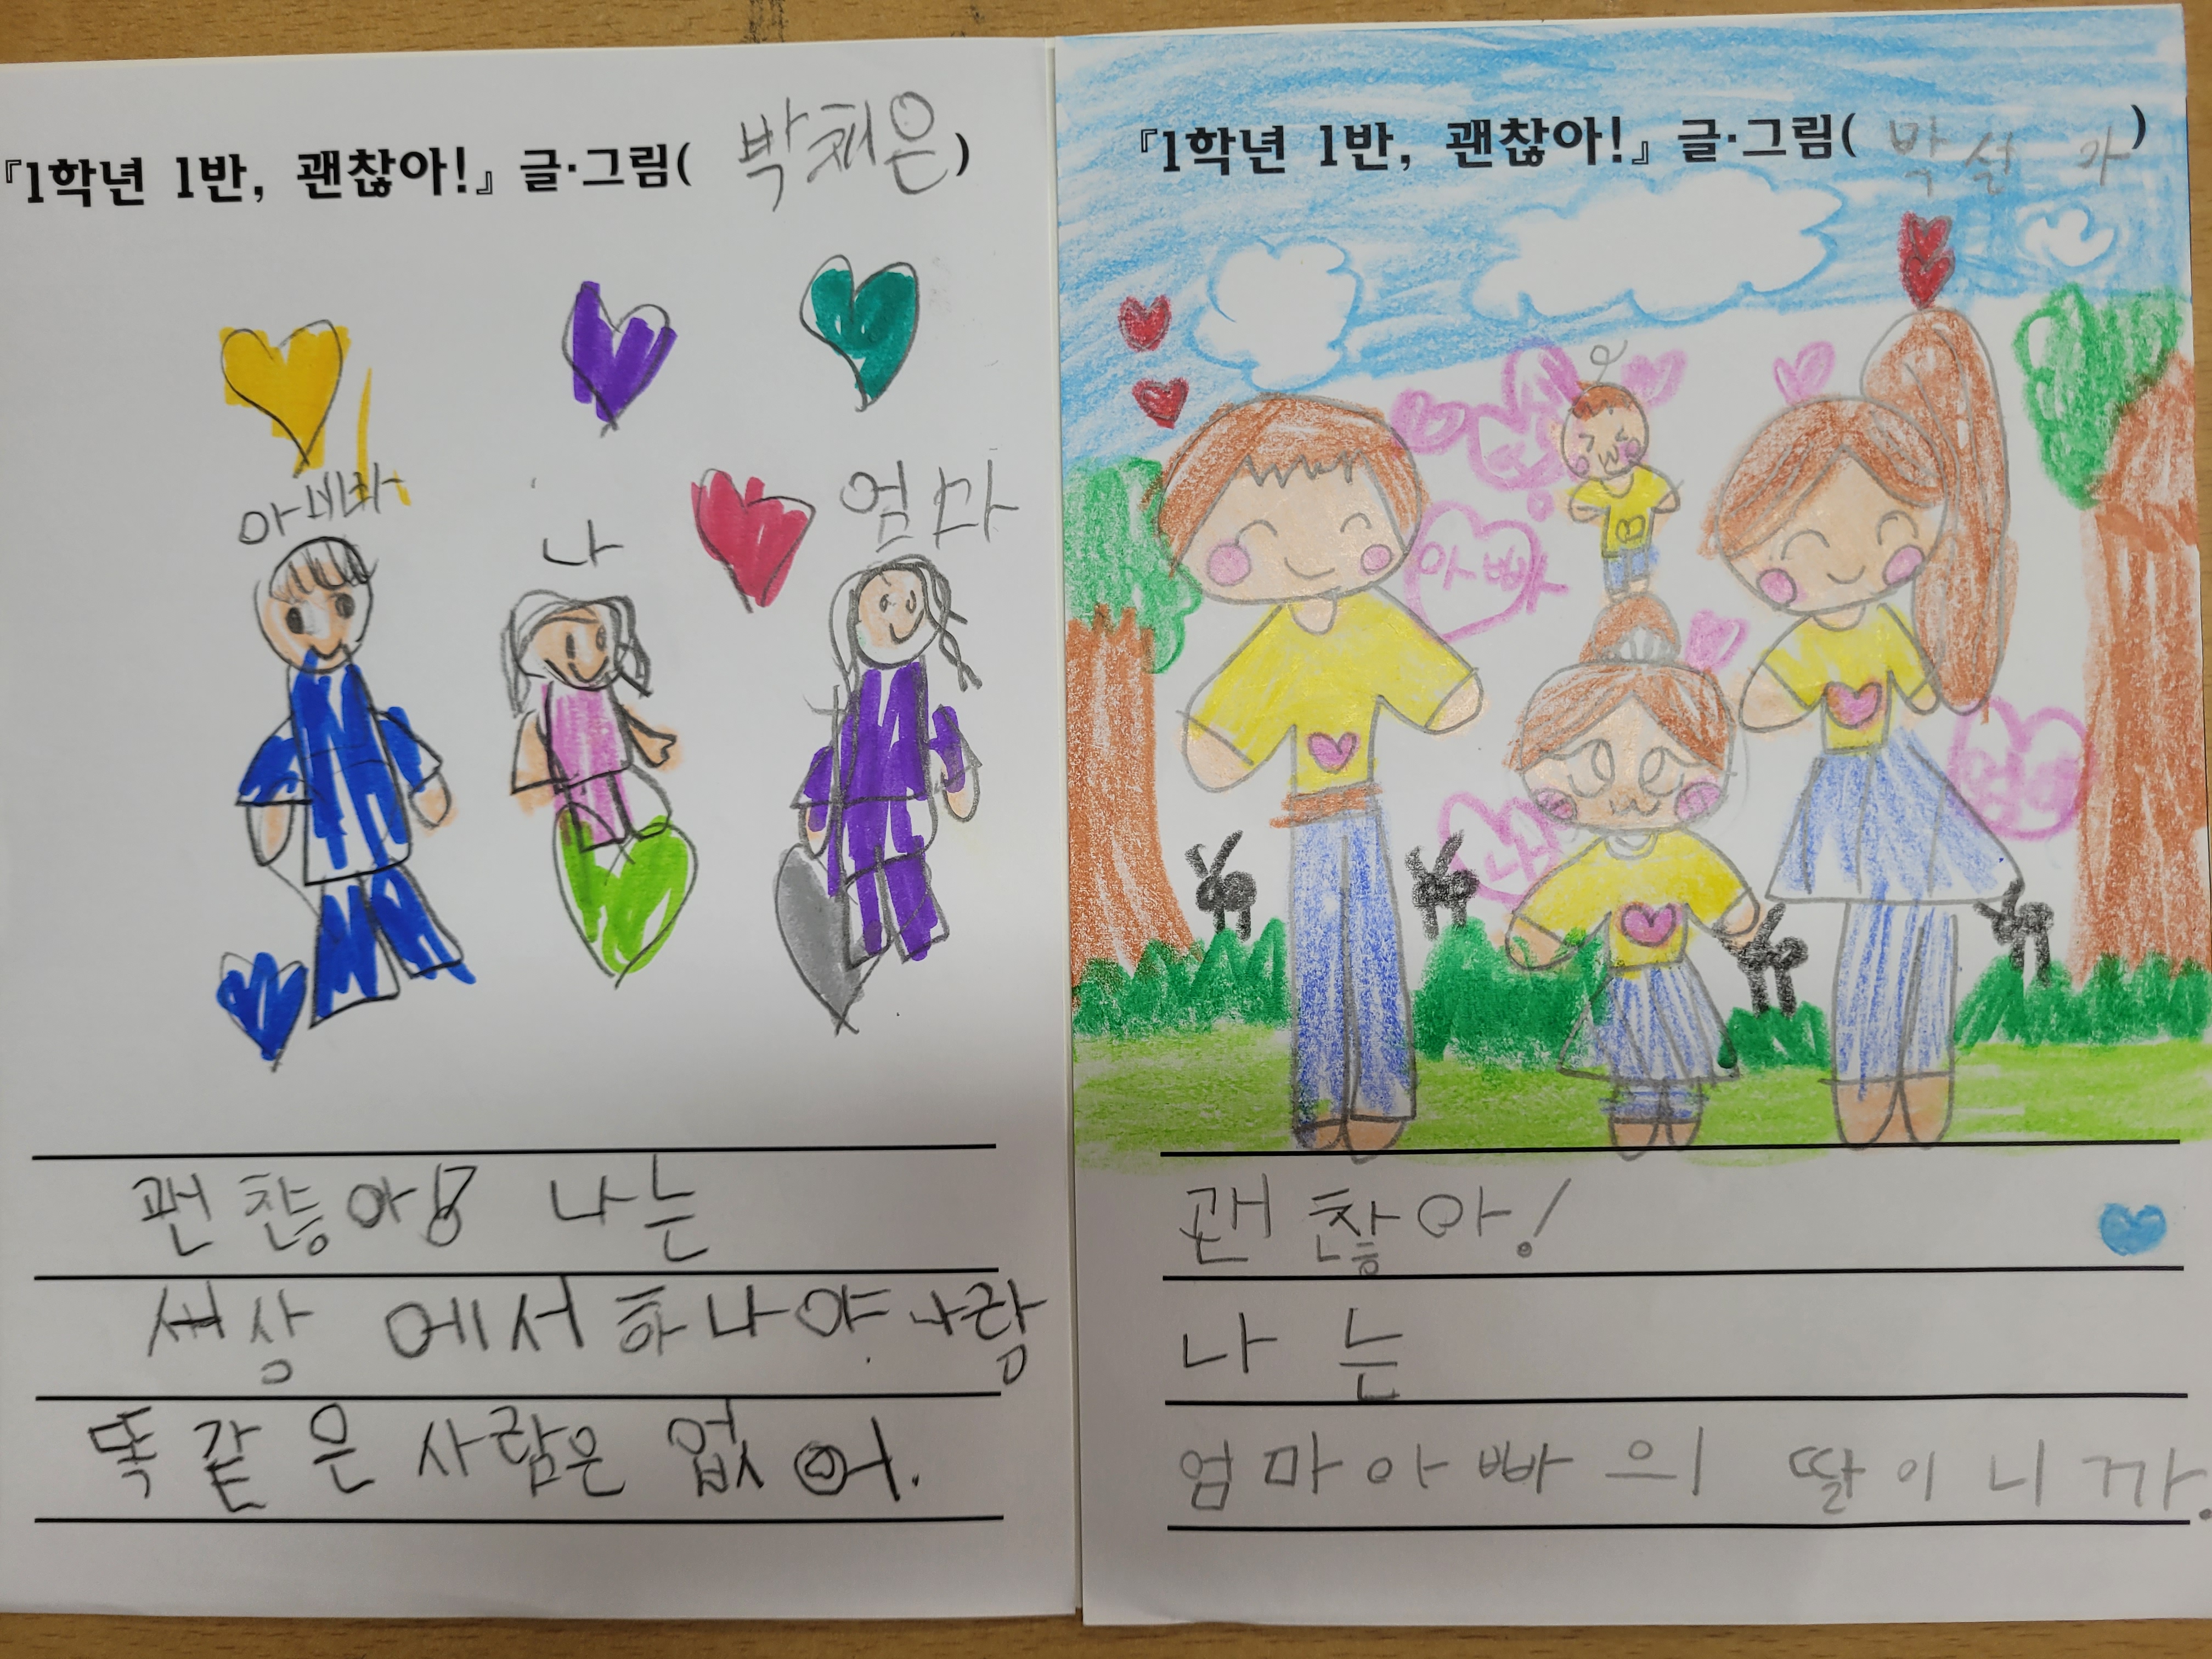 『1학년 1반, 괜찮아!』 글·그림( 박채은 )
아빠
나
엄마
괜찮아! 나는
세상 에서 하나야 나랑
똑같은 사람은 없어.
『1학년 1반, 괜찮아!』 글·그림( 박설아 )
아빠
나
엄마
괜찮아!
나는
엄마아빠의 딸이니까.